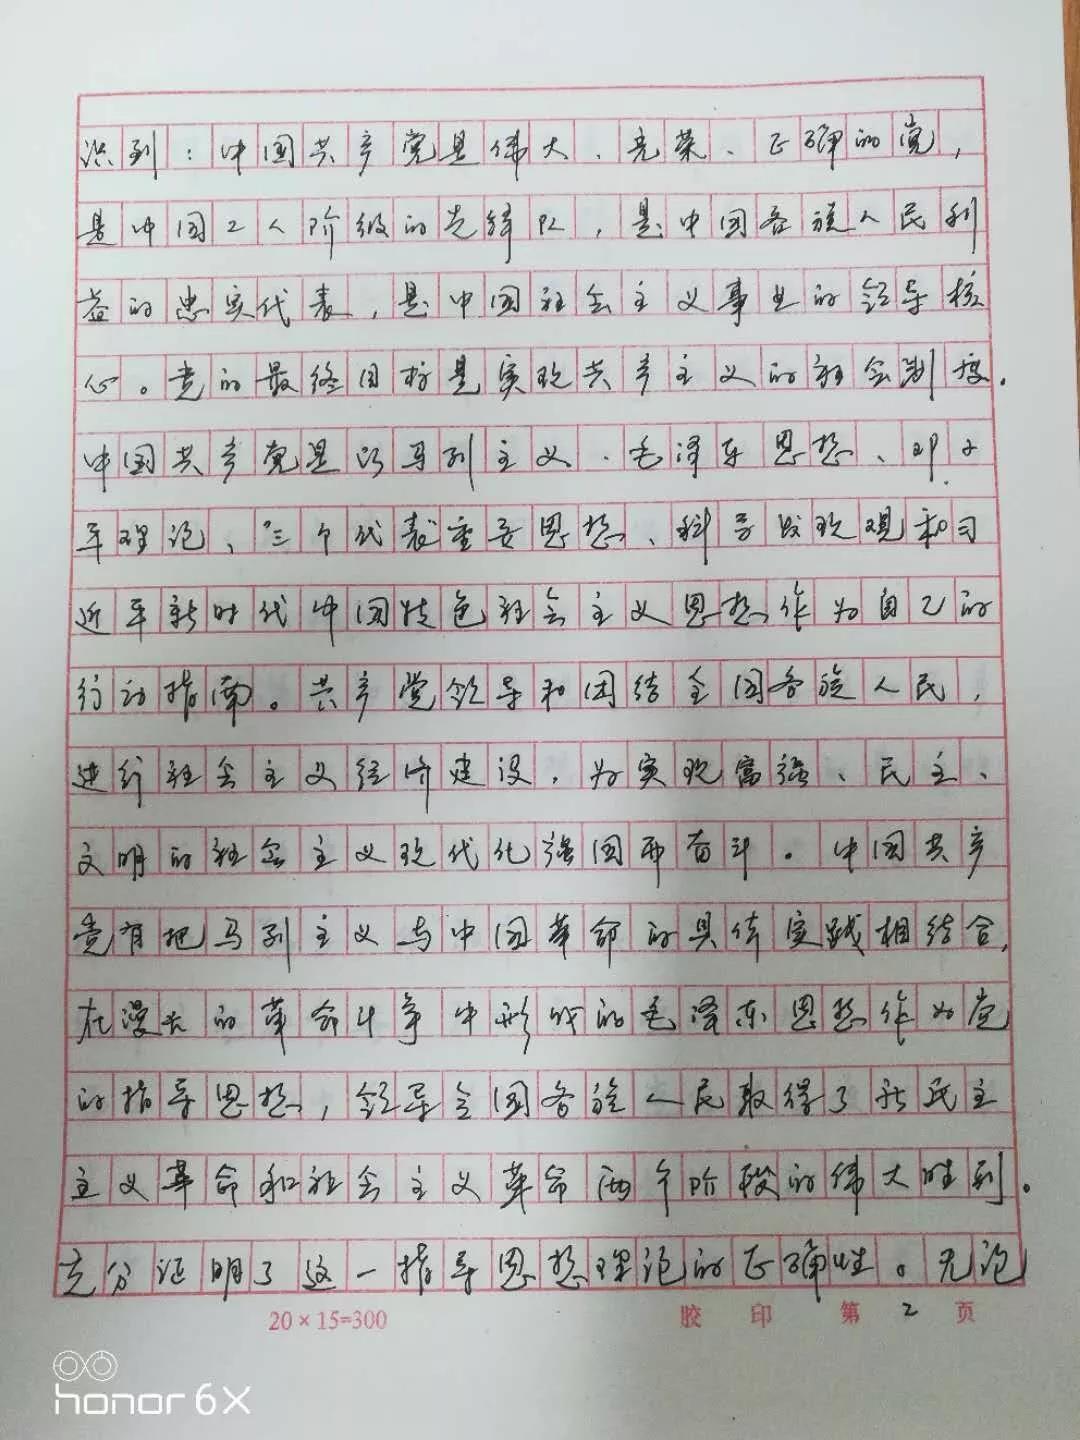 识到：中国共产党是伟大、光荣、正确的党，
是中国工人阶级的先锋队，是中国各族人民利
益的忠实代表，是中国社会主义事业的领导核
心。党的最终目标是实现共产主义的社会制度。
中国共产党是以马列主义、毛泽东思想、邓小
平理论、“三个代表重要思想、科学发现观和习
近平新时代中国特色社会主义思想作为自己的
行动指南。共产党领导和团结全国各族人民，
进行社会主义经济建设，为实现富强、民主、
文明的社会主义现代化强国而奋斗。中国共产
党有把马列主义与中国革命的具体实践相结合，
在漫长的革命斗争中形成的毛泽东思想作为党
的指导思想，领导全国各族人民取得了新民主
主义革命和社会主义革命两个阶段的伟大胜利。
充分证明了这一指导思想理论的正确性。无论
20×15=300 胶印 第2页
honor 6X